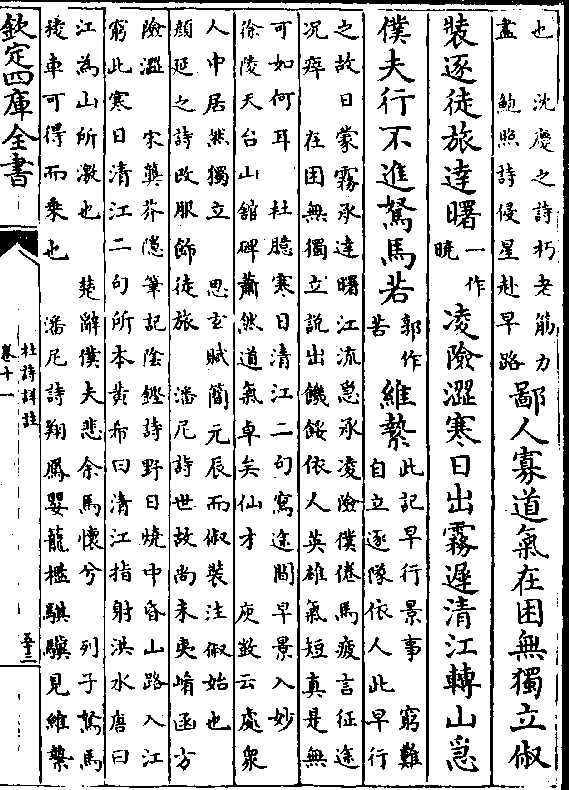 也　沈慶之詩朽老筋力
盡　鮑照詩侵星赴早路
鄙人寡道氣在困無獨立俶
裝逐徒旅達曙一作曉凌險澀寒日出霧遲清江轉山急
僕夫行不進駑馬若郭作苦維縶
此記早行景事　窮難
自立逐隊依人此早行
之故日蒙霧承達曙江流急承凌險僕倦馬疲言征途
况瘁　在困無獨立說出饑餒依人英雄氣短真是無
可如何耳　杜臆寒日清江二句寫途間早景入妙
徐陵天台山館碑蕭然道氣卓矣仙才　庾敳云處衆
人中居然獨立　思玄賦簡元辰而俶裝注俶始也
顔延之詩改服飭徒旅　潘尼詩世故尚未夷崤函方
險澀　宋龔芥隱筆記陰鏗詩野日燒中昏山路入江
窮此寒日清江二句所本黄布曰清江指射洪水唐曰
江為山所激也　楚辭僕夫悲余馬懷兮　列子駑馬
稜車可得而乗也　潘尼詩翔鳳嬰籠檻騏驥見維縶
欽定四庫全書
杜詩詳註
卷十一